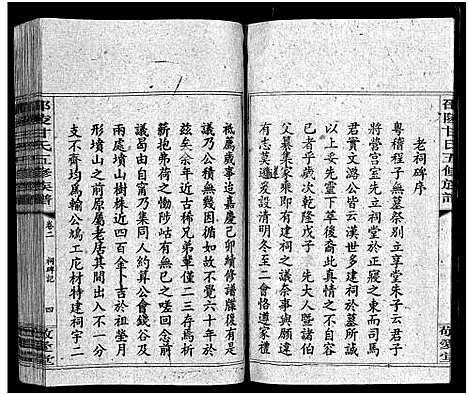 邵陵甘氏五修族譜
老祠碑序
粵稽程子無墓祭別立享堂朱子云君子
將營宮室先立祠堂於正寢之東而司馬
君實文潞公皆云漢世多建祠於墓所誠
以上妥先靈下萃後裔由此其而
父纂集家乘即有建祠之議奈事與願
有志莫遂爰設清明冬至二會恪遵家
祗薦歲事迨嘉慶己卯續修譜牒復有是
議乃公積無幾因循如故不覺六十年於
茲矣余年近古稀兄弟輩僅一三存焉祈
薪抱弗荷之慟陟岵有無已之嗟回念前
議奚容自甯乃集同人約算公會錢谷及
兩處墳山樹株近四百金卜吉於祖塋月
形墳山之前原屬老居其間出入不一分
支不齊均爲輸公鳩工庀材特建祠宇二
邵陵甘氏五修族譜
卷二
祠碑記
四
敬愛堂
敬愛堂